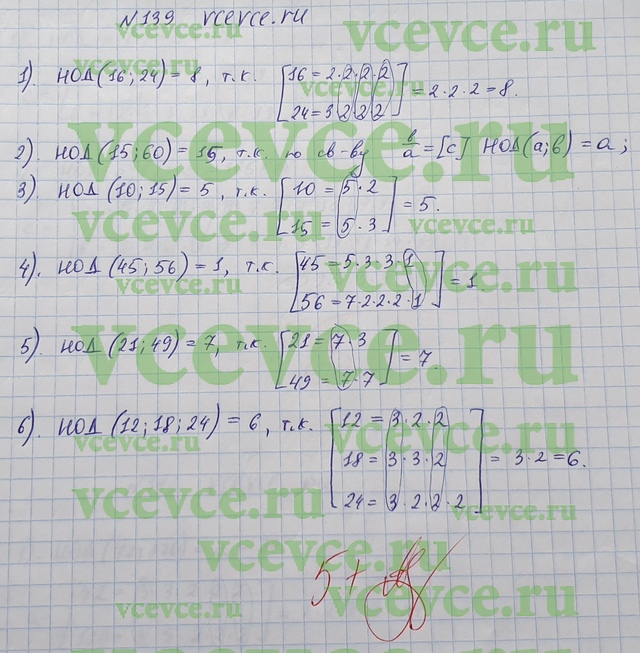 №139 vcevce.ru
1). НОД(16; 24) = 8, т.к. [16 = 2·2·2·2
24 = 3·2·2·2] = 2·2·2 = 8.
2). НОД(15; 60) = 15, т.к. по св-ву b/a = [c] НОД(а; в) = а;
3). НОД(10; 15) = 5, т.к. [10 = 5·2
15 = 5·3] = 5.
4). НОД(45; 56) = 1, т.к. [45 = 5·3·3·1
56 = 7·2·2·2·1] = 1.
5). НОД(21; 49) = 7, т.к. [21 = 7·3
49 = 7·7] = 7.
6). НОД(12; 18; 24) = 6, т.к. [12 = 3·2·2
18 = 3·3·2
24 = 3·2·2·2] = 3·2 = 6.
5+
vcevce.ru